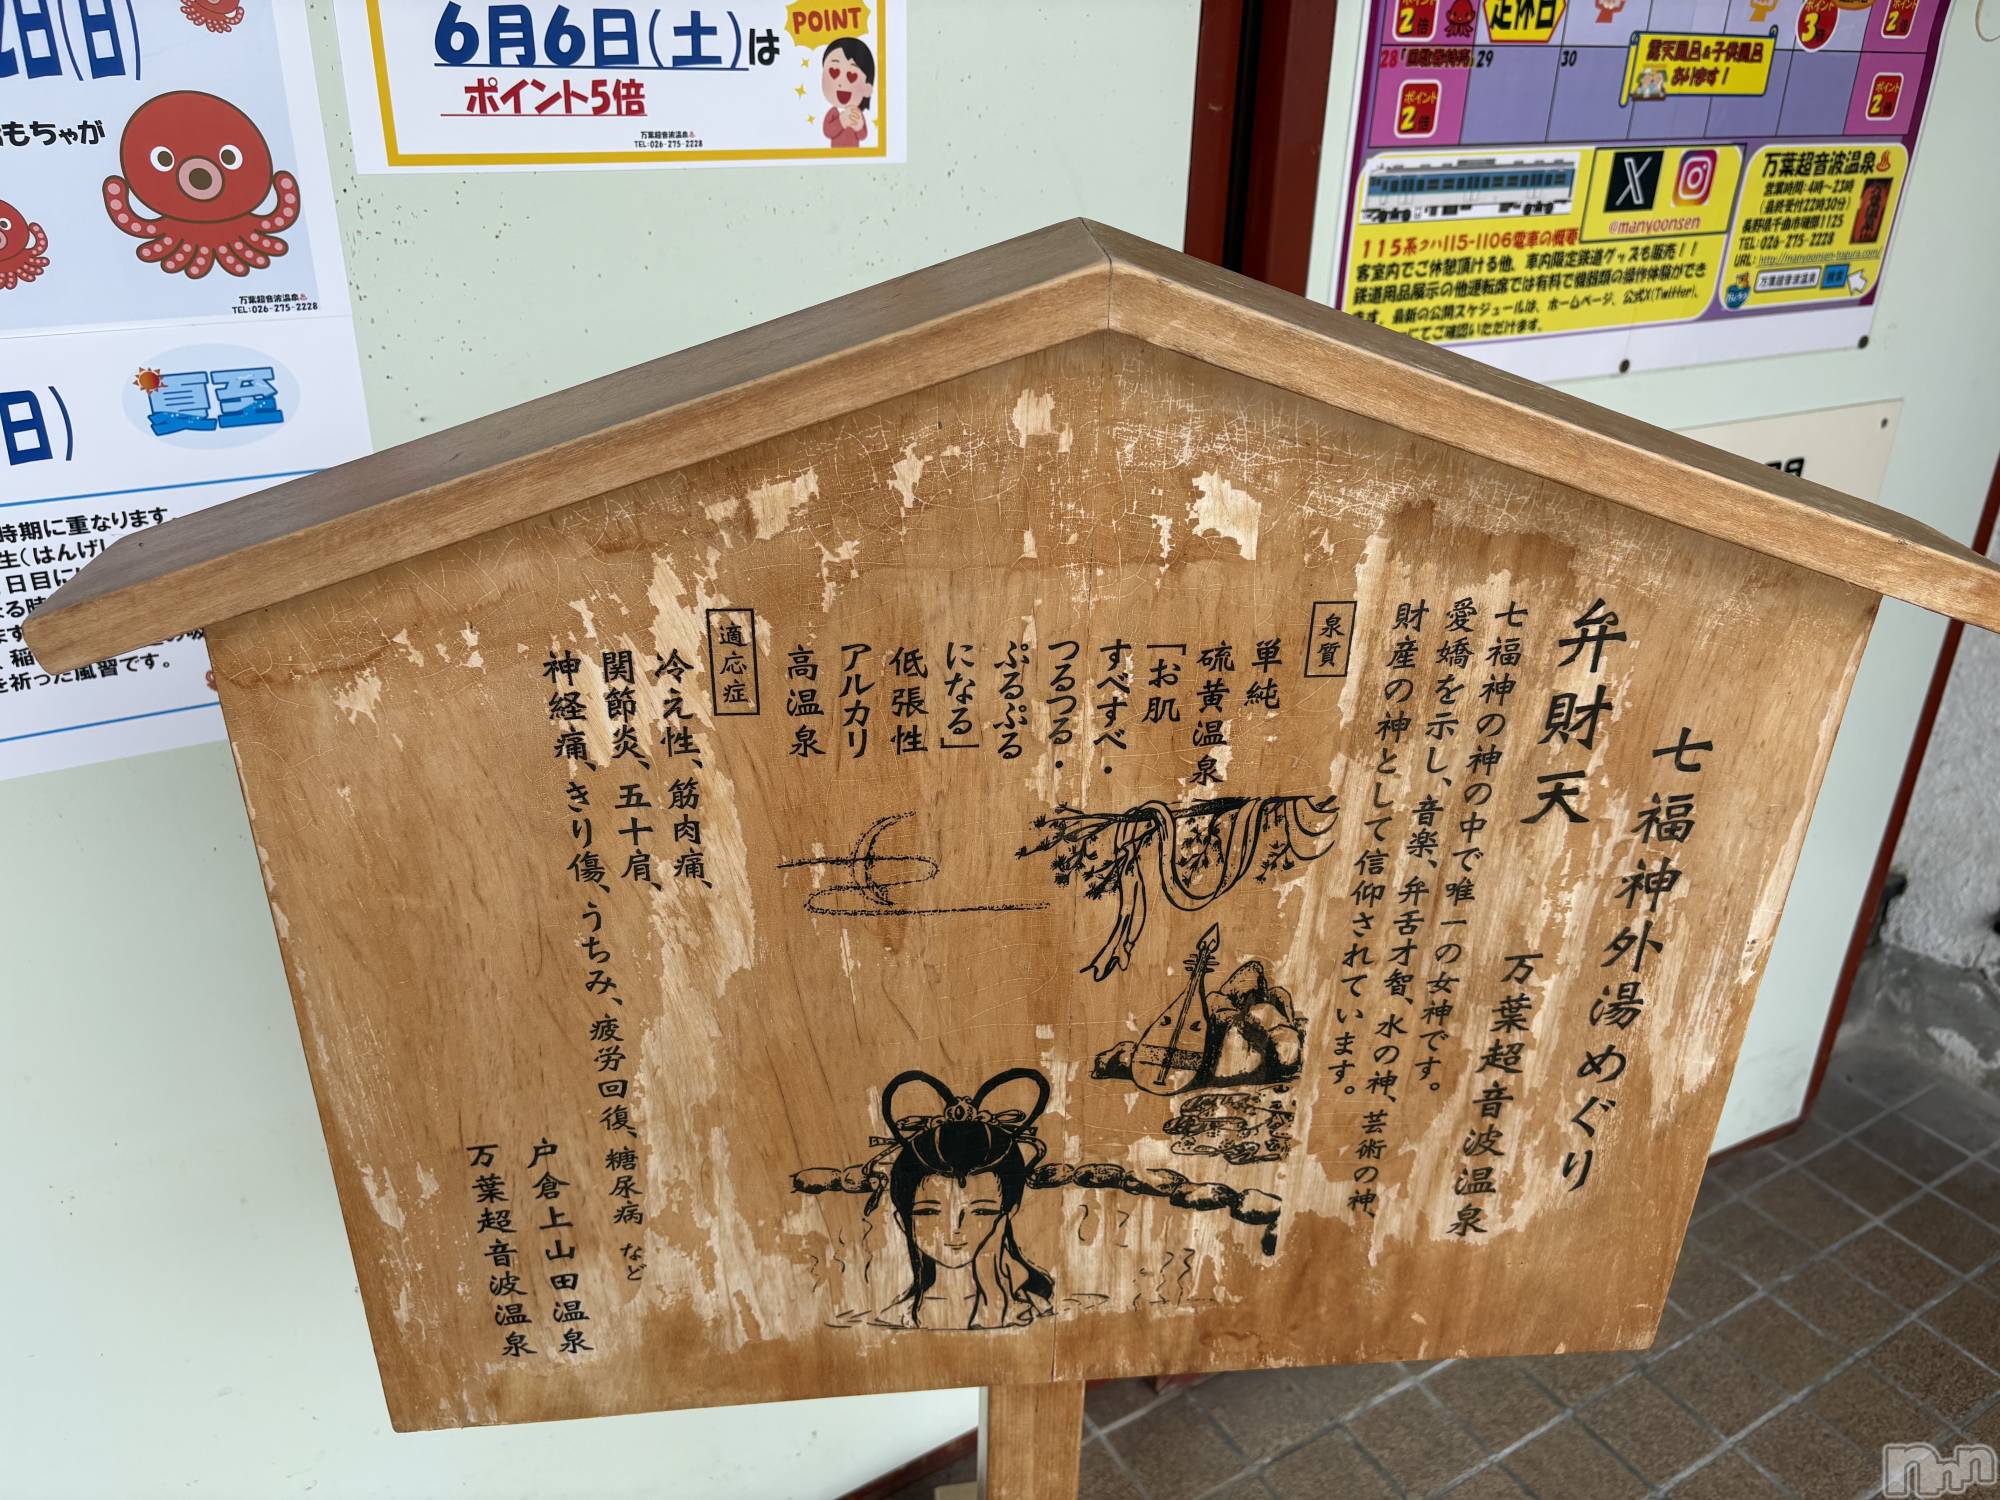 2日(日)
おもちゃが
万葉超音波温泉♨
TEL:026-275-2228
6月6日(土)は
ポイント5倍
POINT
万葉超音波温泉♨
TEL:026-275-2228
(日)
夏至
時期に重なります。
生(はんげし
日目に
る時
ます
稲
を祈った風習です。
ポイント
2倍
定休日
ポイント
3倍
ポイント
2倍
28
29
30
ポイント
2倍
ポイント
2倍
露天風呂&子供風呂
あります!
X
@manyoonsen
115系クハ115-1106電車の概要
客室内でご休憩頂ける他、車内限定鉄道グッズも販売!!
鉄道用品展示の他運転席では有料で機器類の操作体験ができ
ます。最新の公開スケジュールは、ホームページ、公式X(Twitter)、
にてご確認いただけます。
万葉超音波温泉♨
営業時間:4時~23時
(最終受付22時30分)
長野県千曲市磯部1125
TEL:026-275-2228
URL: http://manyoonsen-togura.com/
万葉超音波温泉 検索
七福神外湯めぐり
弁財天 万葉超音波温泉
七福神の神の中で唯一の女神です。
愛嬌を示し、音楽、弁舌才智、水の神、芸術の神、
財産の神として信仰されています。
泉質
単純
硫黄温泉
「お肌
すべすべ・
つるつる・
ぷるぷる
になる」
低張性
アルカリ
高温泉
適応症
冷え性、筋肉痛、
関節炎、五十肩、
神経痛、きり傷、うちみ、疲労回復、糖尿病 など
戸倉上山田温泉
万葉超音波温泉
nnn